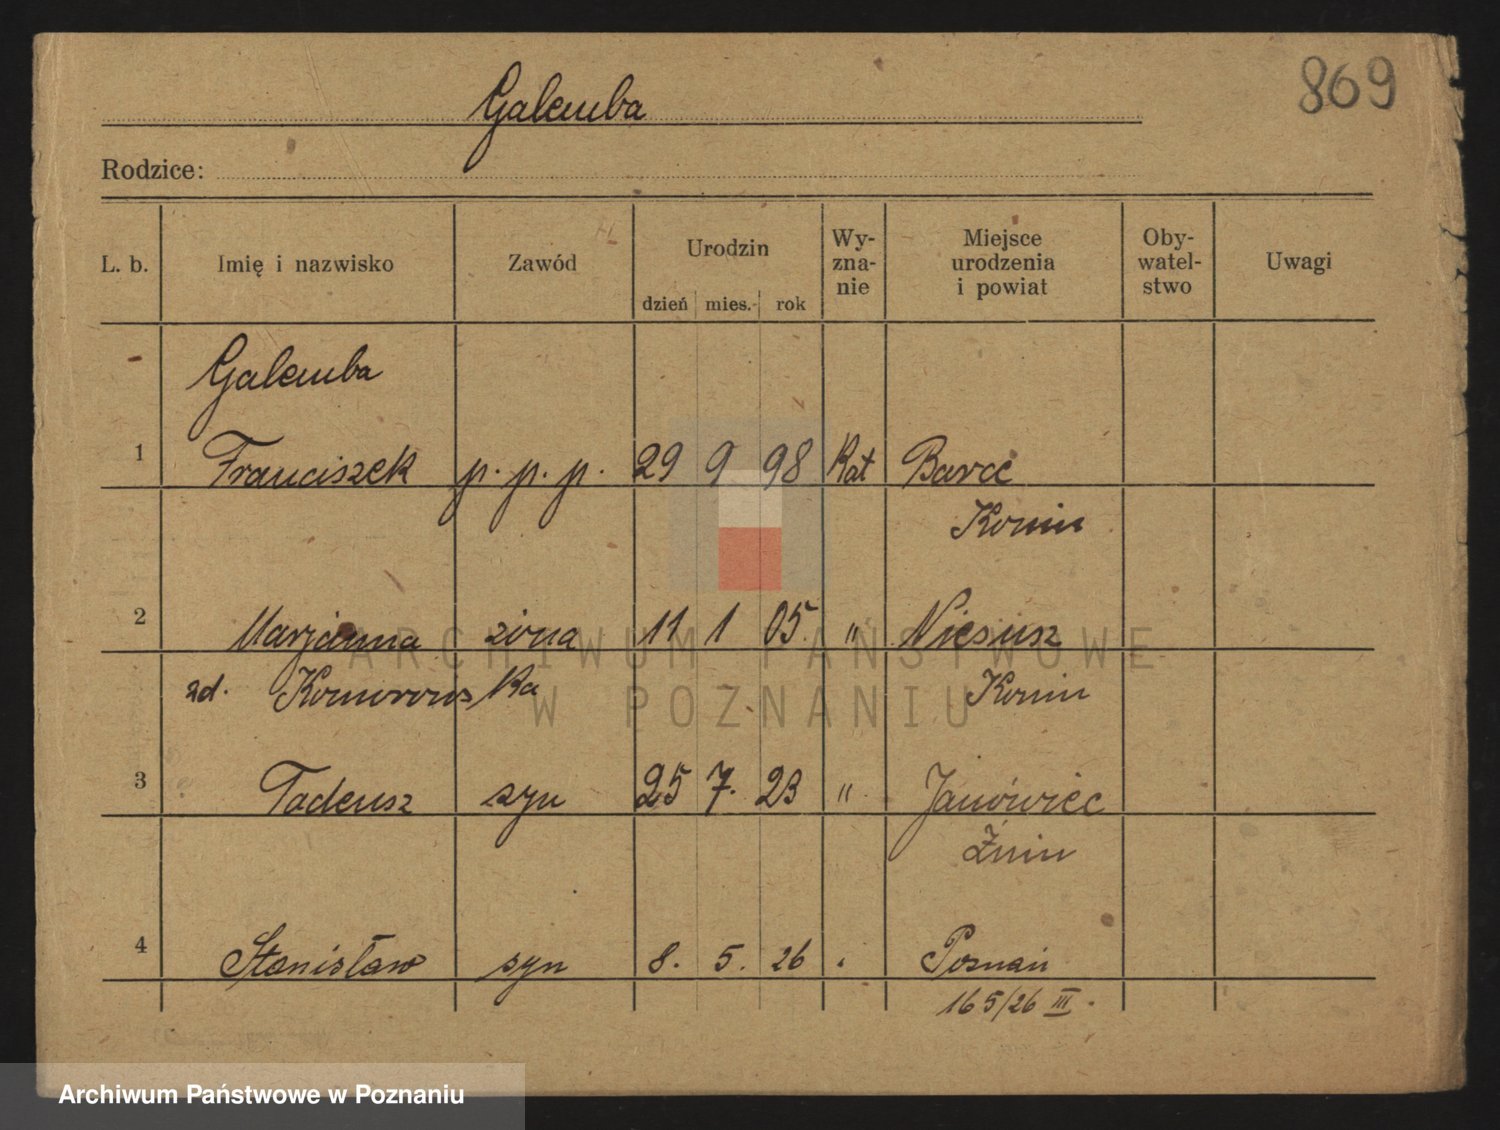 869
Galemba
Rodzice:
L. b. Imię i nazwisko Zawód Urodzin dzień mies. rok Wy-zna-nie Miejsce urodzenia i powiat Oby-watel-stwo Uwagi
Galemba
1 Franciszek p. p. p. 29 9 98 Kat Barce
Konin
2 Marjanna żona 11 1 05. " Niesusz
zd. Komorowska Konin
3 Tadeusz syn 25 7. 23 " Janówiec
Żnin
4 Stanisław syn 8. 5. 26 Poznań
165/26 III.
ARCHIWUM PAŃSTWOWE
W POZNANIU
Archiwum Państwowe w Poznaniu